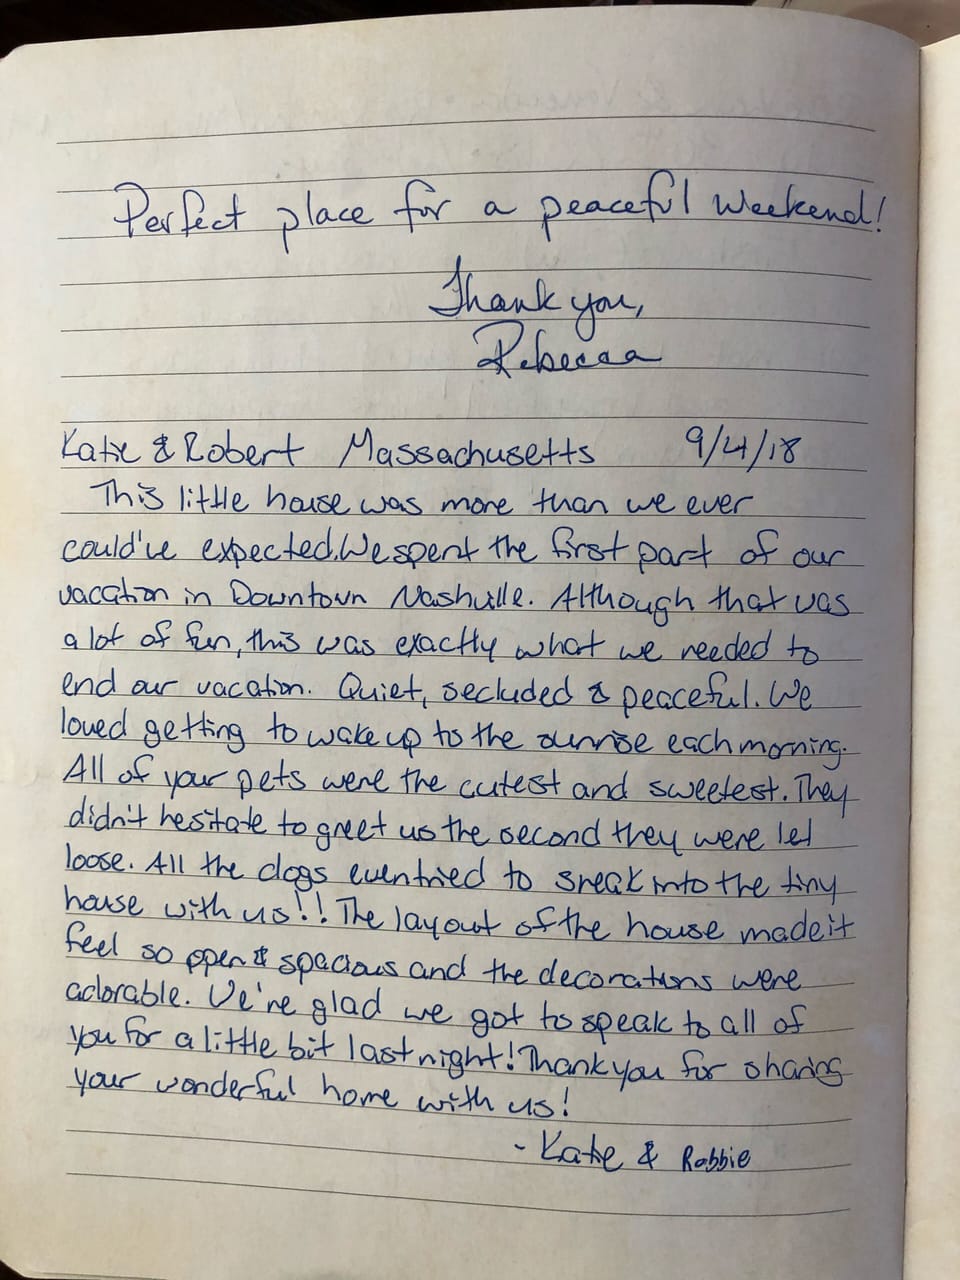 Perfect place for a peaceful weekend!
Thank you,
Rebecca
Katie & Robert Massachusetts 9/4/18
This little house was more than we ever
could've expected. We spent the first part of our
vacation in Downtown Nashville. Although that was
a lot of fun, this was exactly what we needed to
end our vacation. Quiet, secluded & peaceful. We
loved getting to wake up to the sunrise each morning.
All of your pets were the cutest and sweetest. They
didn't hesitate to greet us the second they were let
loose. All the dogs even tried to sneak into the tiny
house with us!! The layout of the house made it
feel so open & spacious and the decorations were
adorable. We're glad we got to speak to all of
you for a little bit last night! Thank you for sharing
your wonderful home with us!
- Katie & Robbie